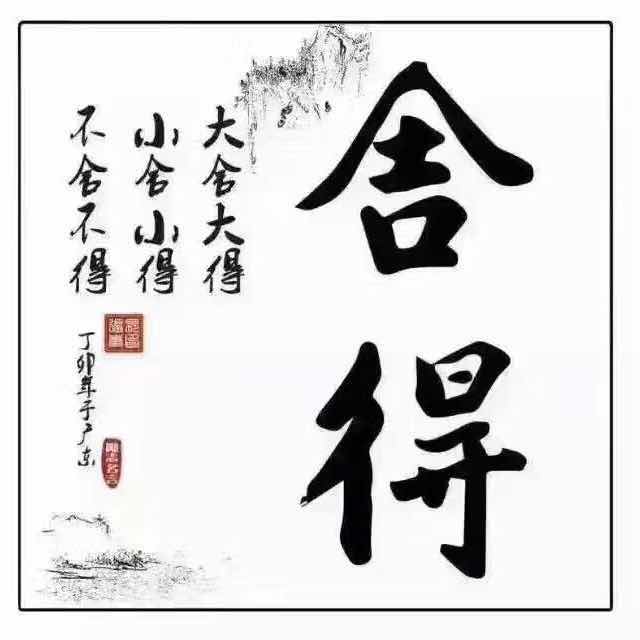 舍得
大舍大得
小舍小得
不舍不得
丁卯年于广东